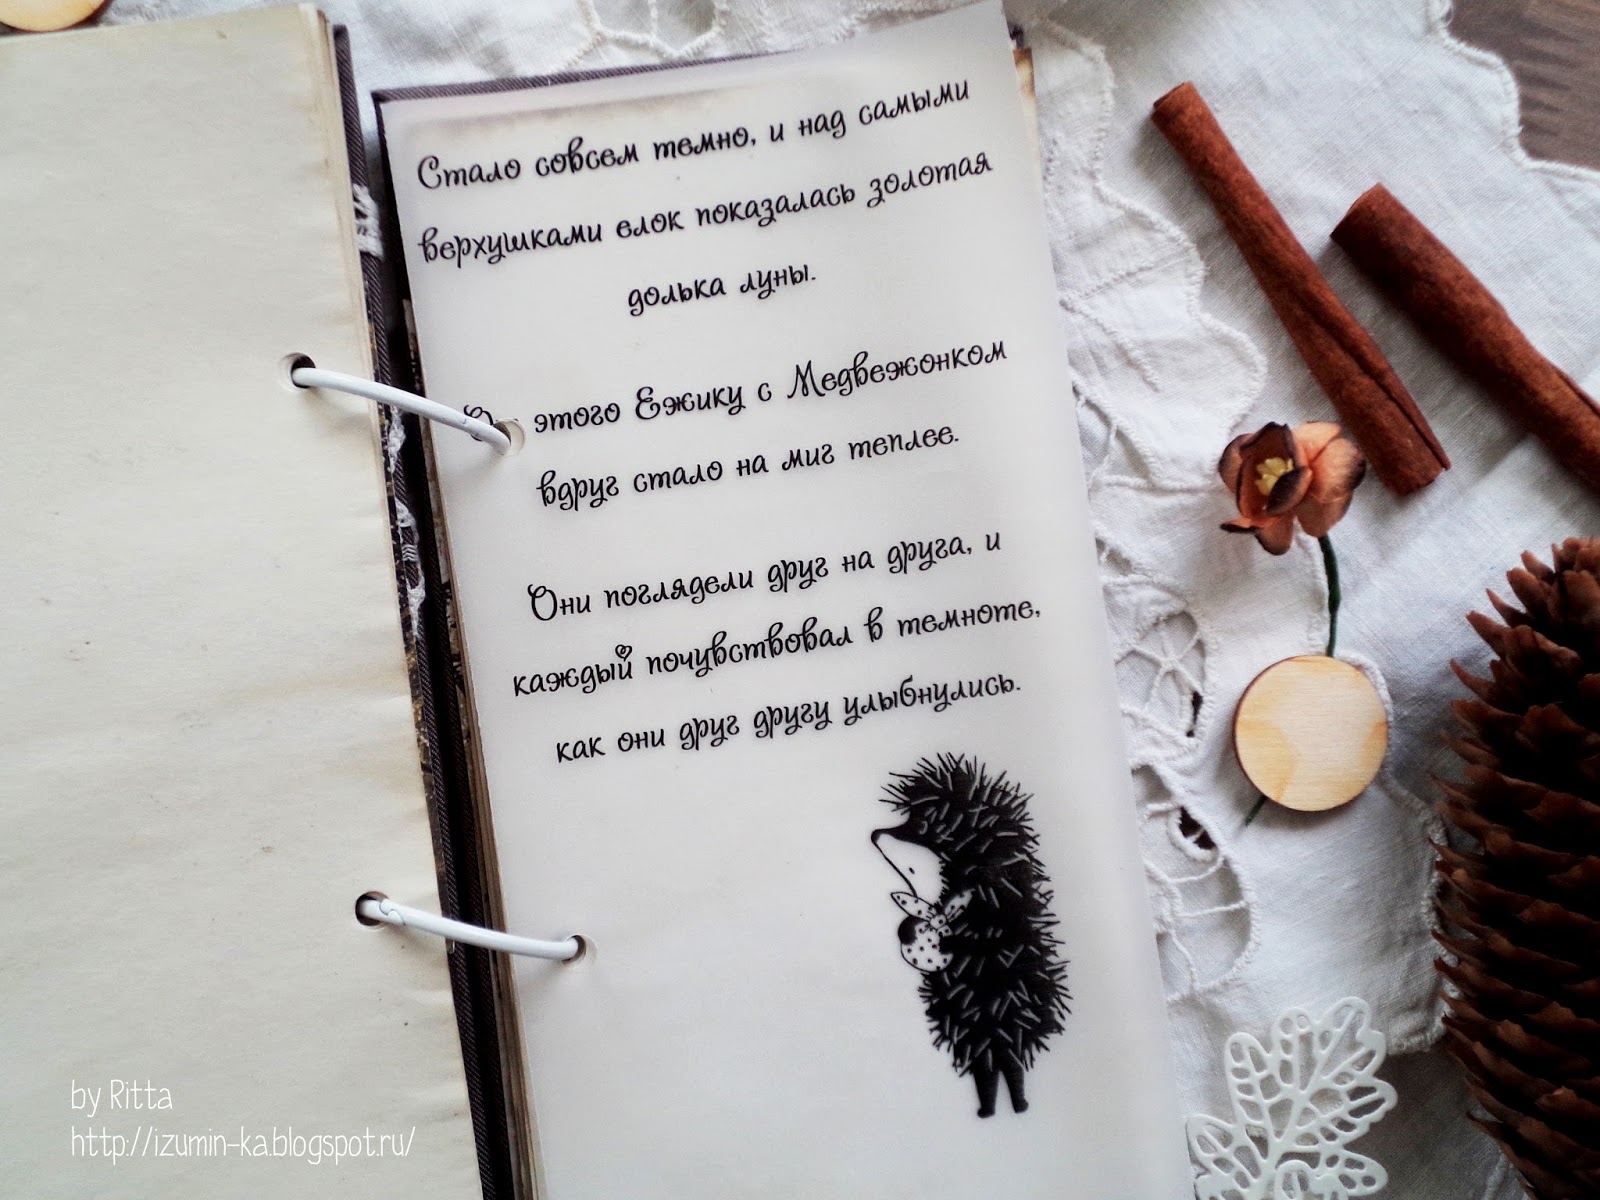 Стало совсем темно, и над самыми
верхушками елок показалась золотая
долька луны.
этого Ежику с Медвежонком
вдруг стало на миг теплее.
Они поглядели друг на друга, и
каждый почувствовал в темноте,
как они друг другу улыбнулись.
by Ritta
http://izumin-ka.blogspot.ru/